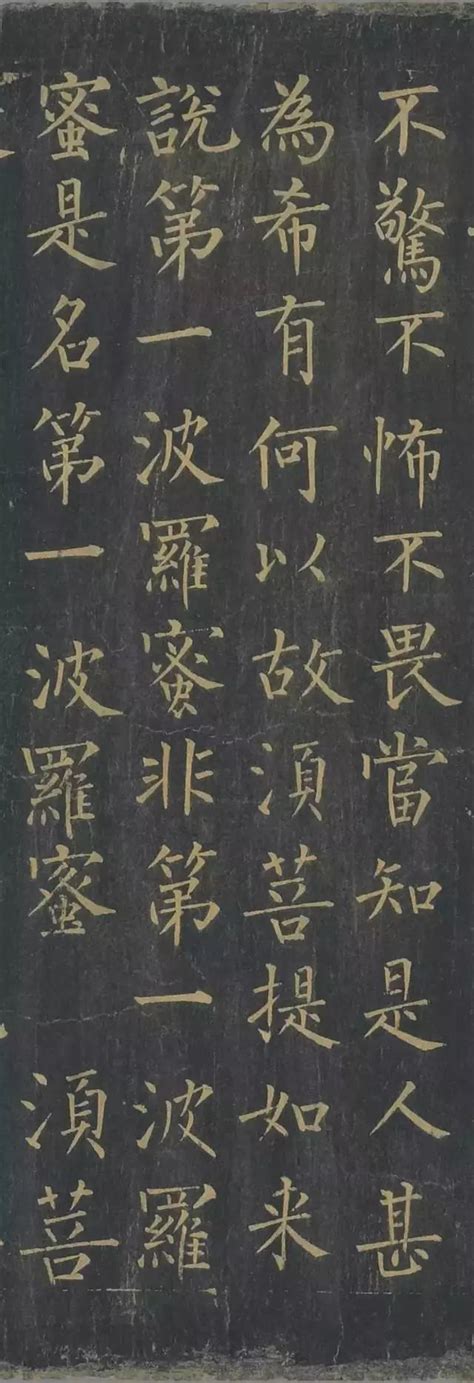 不驚不怖不畏當知是人甚
為希有何以故湏菩提如来
說第一波羅蜜非第一波羅
蜜是名第一波羅蜜湏菩